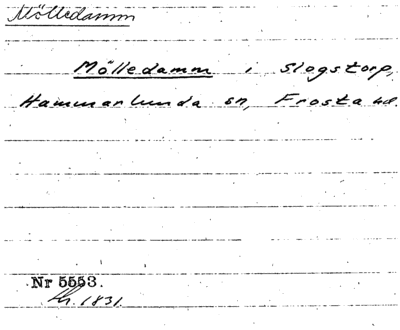 Mölledamm
Mölledamm i Slogstorp,
Hammarlunda sn, Frosta hd.
Nr 5553.
1831.